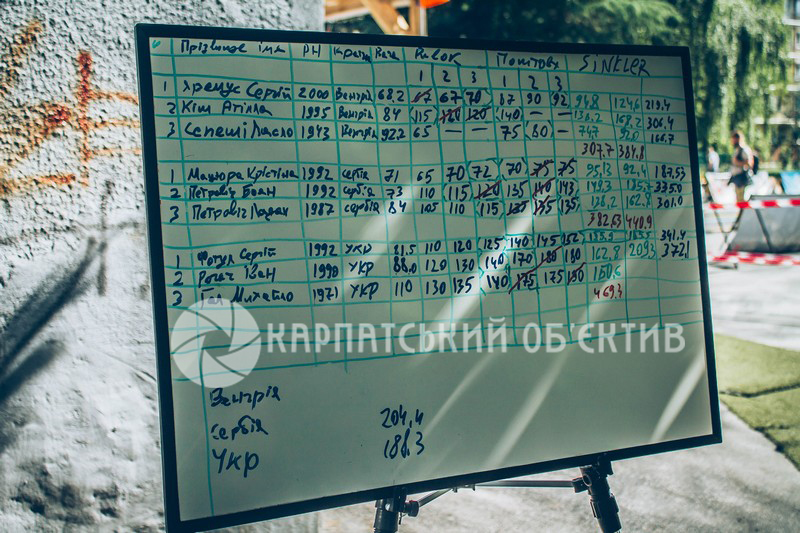 Прізвище імя РН Країна Вага Ривок Поштовх SINKLER
1 2 3 1 2 3
1 Сергій 2000 Венгрія 68,2 67 67 70 87 90 92 94,8 124,6 219,4
2 Кім Атілла 1995 Венгрія 84 115 120 120 140 — — 136,2 168,2 306,4
3 Сепеші Ласло 1943 Венгрія 92,2 65 — — 75 (80) — 74,7 92,0 166,7
307,7 384,8
1 Крістіна 1992 сербія 71 65 70 (72) 70 75 75 95,13 92,4 187,53
2 Петровіз Боян 1992 сербія 73 110 (115) 120 135 140 143 149,3 335,0
3 Петровіз 1987 сербія 84 105 110 (115) 135 135 135 136,2 162,8 301,0
382,63 440,9
1 Сергій 1992 УКР 110 120 (125) 140 145 152 341,4
2 Рогач Іван 1990 УКР 120 130 (140) 170 180 180 162,8 209,3 372,1
3 Михайло 1971 УКР 110 130 135 140 175 175 150,6
469,3
КАРПАТСЬКИЙ ОБ'ЄКТИВ
Венгрія
Сербія 204,4
УКР 188,3